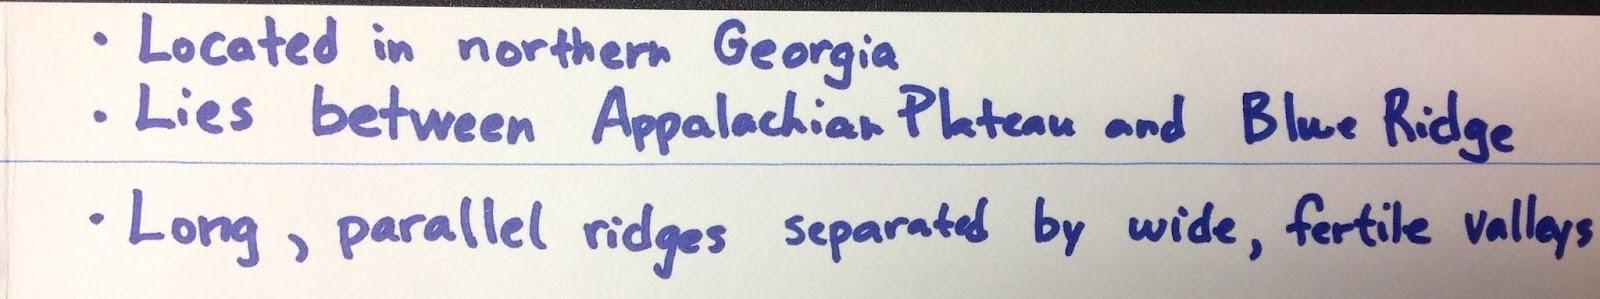 • Located in northern Georgia
• Lies between Appalachian Plateau and Blue Ridge
• Long, parallel ridges separated by wide, fertile valleys